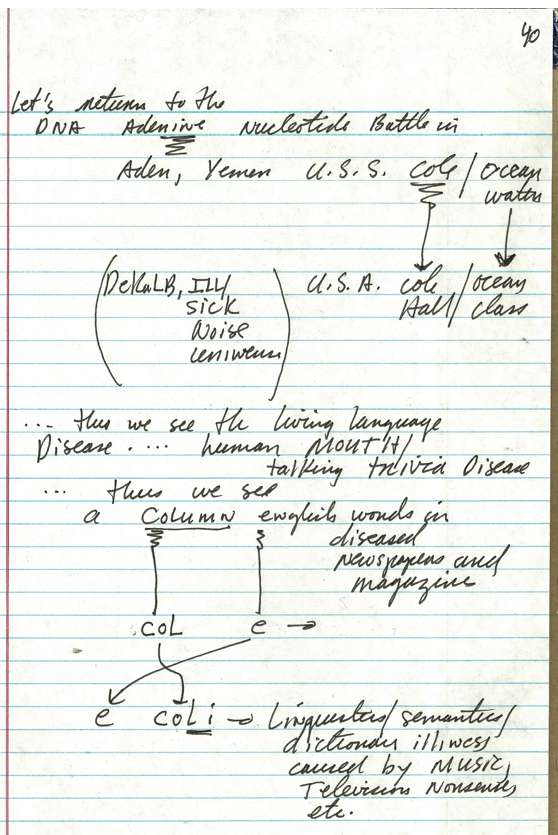 40
Let's returns to the
DNA Adenine Nucleotide Battle in
Aden, Yemen U.S.S. Cole / Ocean
water
(DeKaLB, ILL U.S.A. Cole / ocean
SICK Hall / class
Noise
...thus we see the living language
Disease.... human MOUTH/
talking trivia Disease
... thus we see
a Column english words in
diseased
Newspapers and
magazine
coL e →
e coLi → Linguistes/semantics/
dictionary illness
caused by MUSIC,
Television Nonsense
etc.